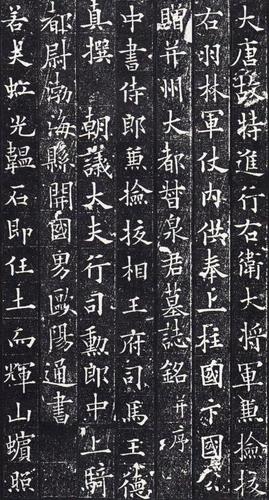 大唐故特進行右衛大将軍兼撿挍
右羽林軍仗内供奉上柱國卞國公
贈并州大都督泉君墓誌銘 并序
中書侍郎兼撿挍相王府司馬王德
真撰 朝議大夫行司勳郎中上騎
都尉渤海縣開國男歐陽通書
若夫虹光韞石即任土而輝山蠙照